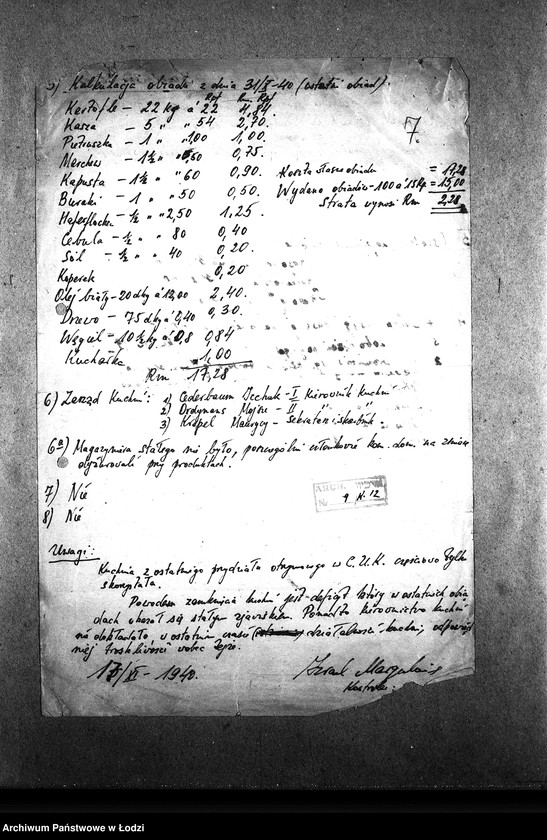 5) Kalkulacja obiadu z dnia 31/X-40 (ostatni obiad).
Rpf Rm. Rpf.
7.
Kartofle – 22 kg à 22 4,84
Kasza – 5 " " 54 2,70.
Pietruszka – 1 " " 1,00 1,00.
Marchew – 1½ " " 0,50 0,75.
Kapusta – 1½ " " 60 0,90.
Buraki – 1 " " 50 0,50.
Haferflocken – ½ " " 2,50 1,25.
Cebula – ½ " " 80 0,40
Sól – ½ " " 40 0,20.
Koperek 0,20
Olej biały – 20 dkg à 12,00 2,40.
Drzewo – 75 dkg à 0,40 0,30.
Węgiel – 10½ kg à 0,8 0,84
Kucharka 1,00
Rm 17,28
Koszta obiadu = 17,28
Wydano obiadów – 100 à 15 Rpf. = 15,00
Strata wynosi Rm 2,28
6) Zarząd Kuchni: 1) Cederbaum Icchak – I Kierownik Kuchni
2) Ordynans Mojsze – II " "
3) Krepel Maurycy – Sekretarz i skarbnik.
6a) Magazyniera stałego nie było, poszczególni członkowie kom. dom. na zmianę
dyżurowali przy produktach.
7) Nie
8) Nie
ARCH.
№ 9 N. 12
Uwagi:
Kuchnia z ostatniego przydziału otrzymanego w C.U.K. częściowo tylko
skorzystała.
Powodem zamknięcia kuchni jest deficyt który w ostatnich obia
dach okazał się stałym zjawiskiem. Ponadto kierownictwo kuchni
nie dokładało, w ostatnim czasie działalności kuchni, odpowied
niej troskliwości wobec tejże.
17/XI – 1940.
Izrael
Kontroler.